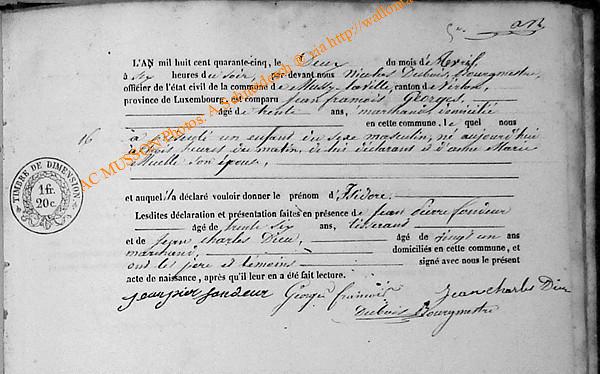 L'AN mil huit cent quarante-cinq, le Deux du mois d'Avril,
à six heures du soir, par devant nous Nicolas Dubuis, Bourgmestre,
officier de l'état civil de la commune de Mussy-la-ville, canton de Virton,
province de Luxembourg, est comparu jean françois Georges,
âgé de trente ans, marchand, domicilié
en cette commune, le quel nous
16 a présenté un enfant du sexe masculin, né aujourd'hui
à trois heures du matin, de lui déclarant et d'anne Marie
son épouse,
et auquel il a déclaré vouloir donner le prénom d'Isidore.
Lesdites déclaration et présentation faites en présence de jean pierre fondeur
âgé de trente six ans, tisserand
et de jean charles Dieu, âgé de vingt un ans
marchand, domiciliés en cette commune, et
ont le père et témoins signé avec nous le présent
acte de naissance, après qu'il leur en a été fait lecture.
jean pier fondeur George françois jean charles Dieu
Dubuis Bourgmestre
TIMBRE DE DIMENSION
1 fr.
20 c.
AC MUSSON Photos: A. Schmidde
via http://wallonia